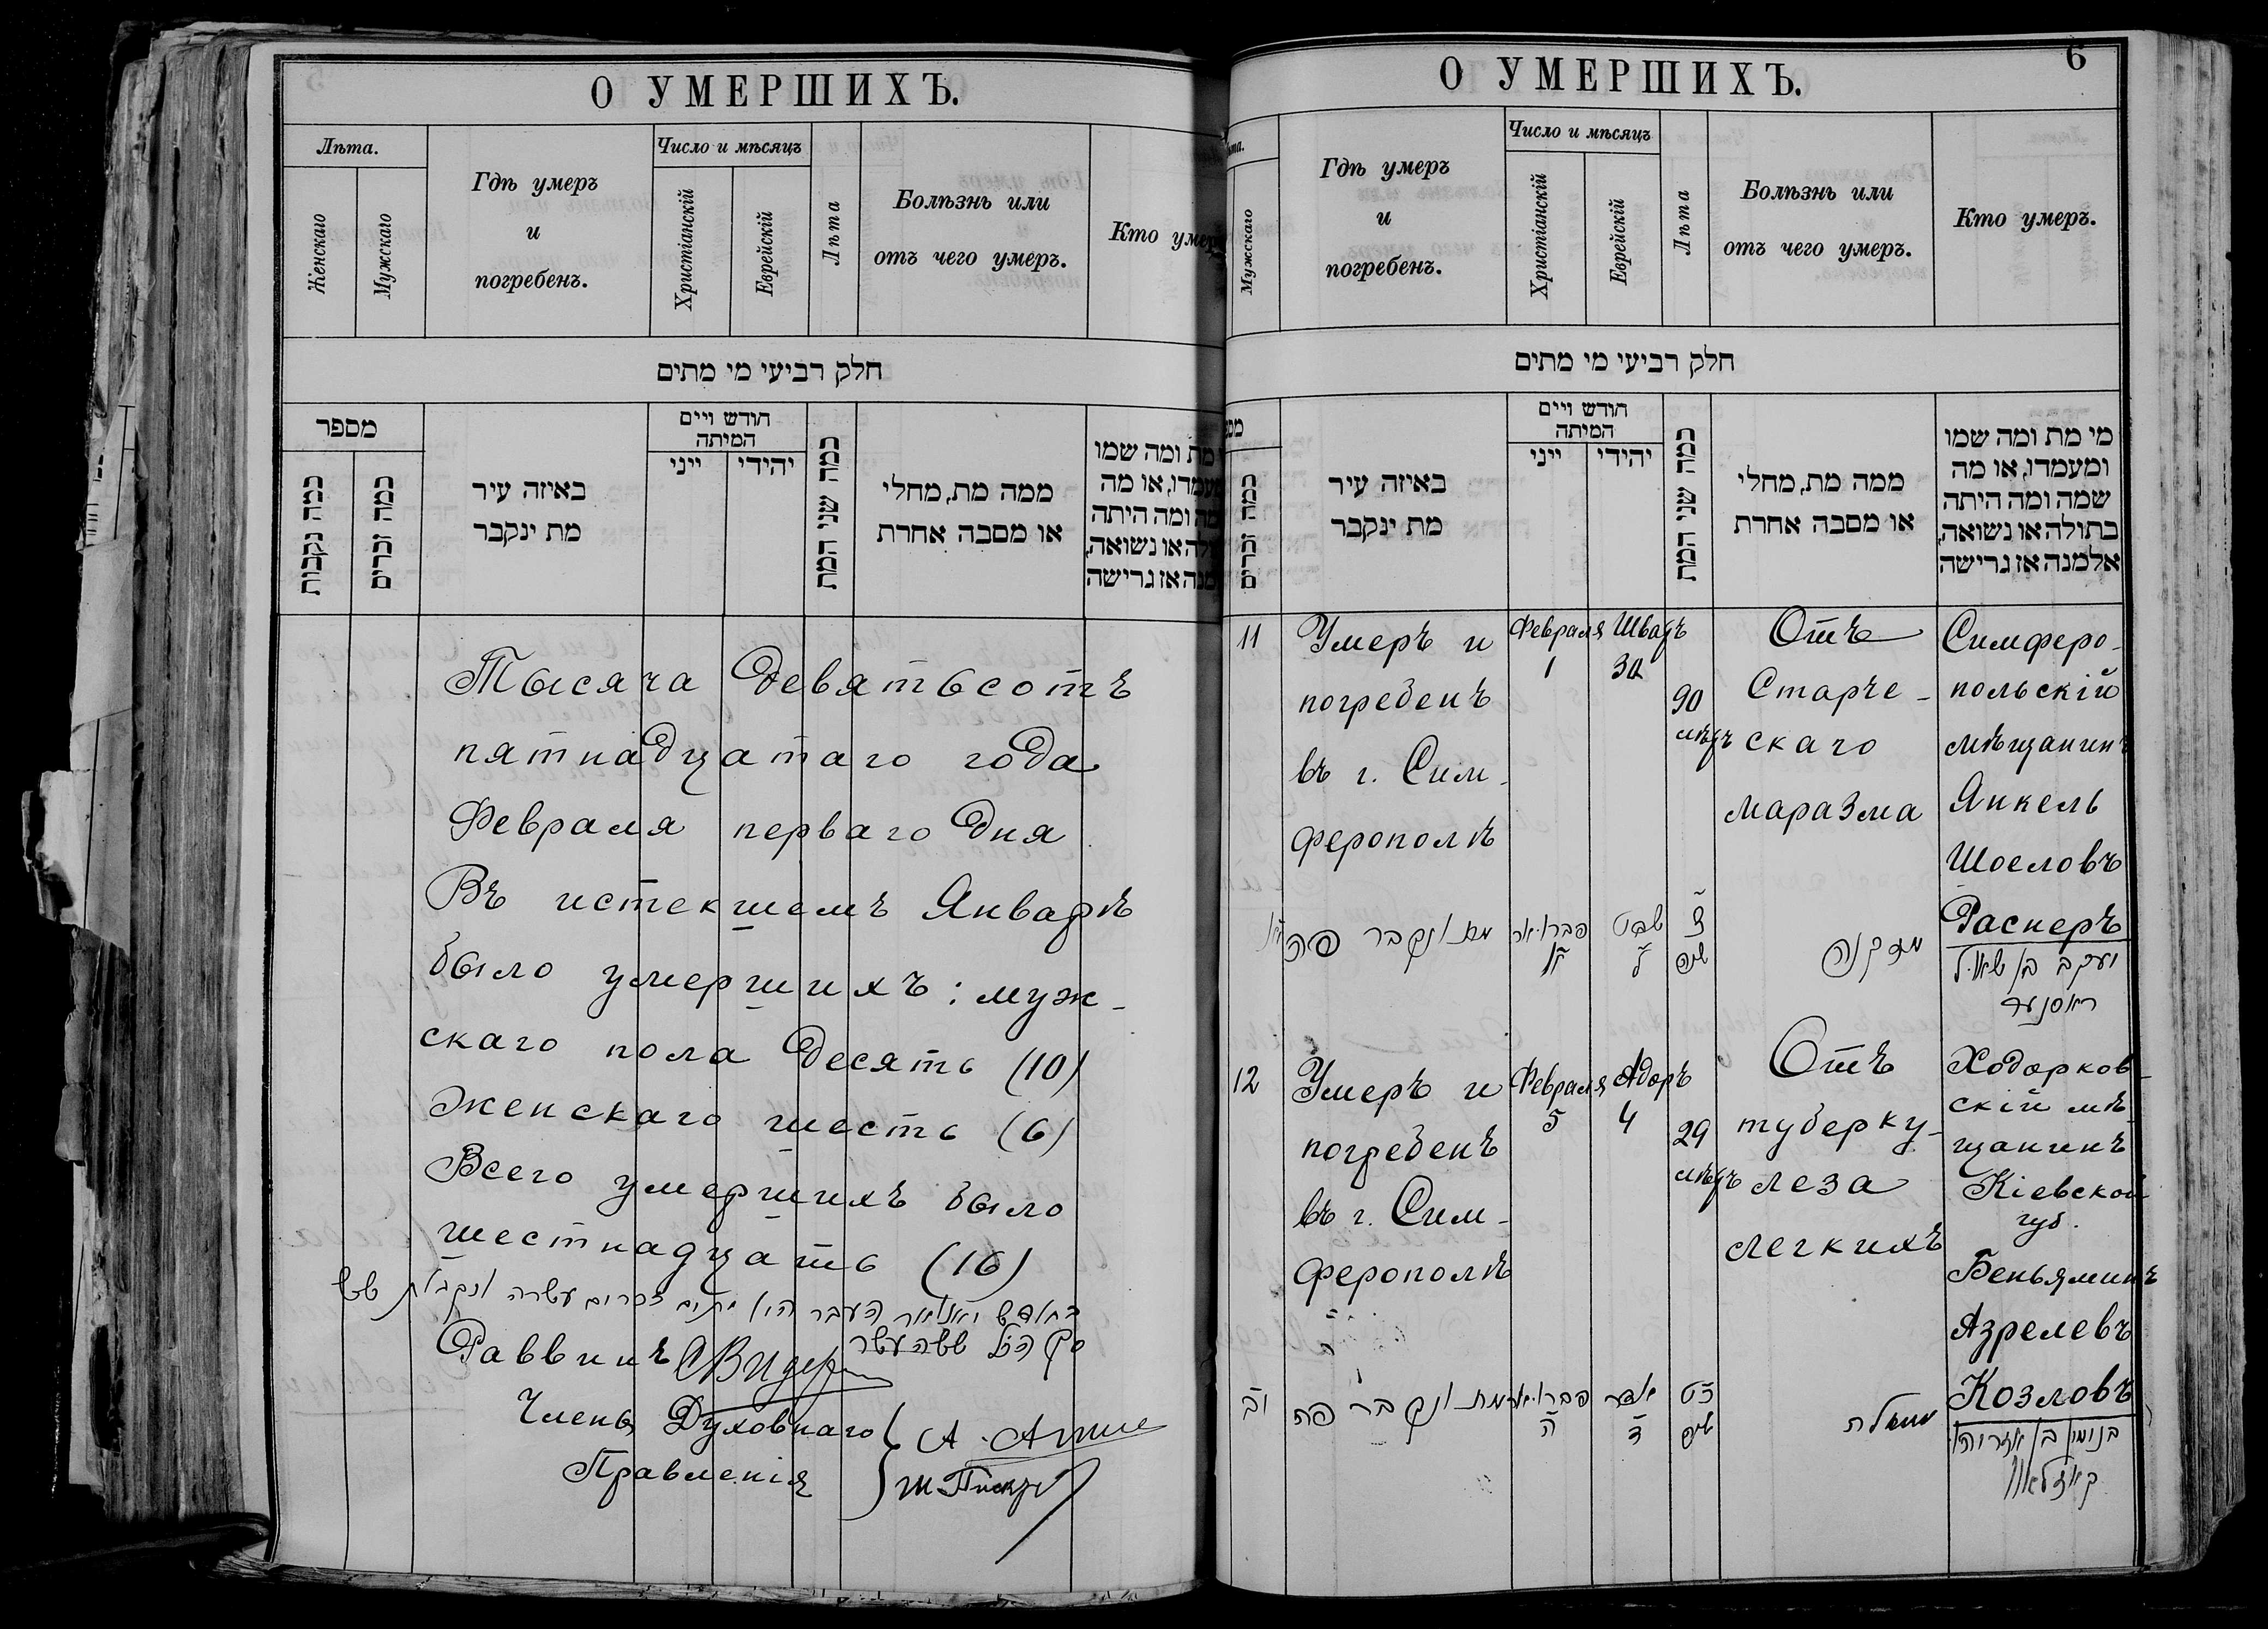 О УМЕРШИХЪ.
Лѣта.
Женскаго
Мужскаго
Гдѣ умеръ
и
погребенъ.
Число и мѣсяцъ
Христіанскій
Еврейскій
Лѣта
Болѣзнь или
отъ чего умеръ.
Кто умеръ
חלק רביעי מי מתים
מספר
כמה נקבות
כמה זכרים
באיזה עיר
מת ינקבר
חודש ויים
המיתה
ייני
יהודי
כמה שני המת
ממה מת, מחלי
או מסבה אחרת
מת ומה שמו
ומעמדו, או מה
שמה ומה היתה
בתולה או נשואה,
אלמנה אז גרישה
Тысяча девятьсотъ
пятнадцатаго года
Февраля перваго дня
Въ истекшемъ Январѣ
было умершихъ: муж-
скаго пола десять (10)
женскаго шесть (6)
Всего умершихъ было
шестнадцать (16)
בחודש יאנואר העבר היו מתים זכרים עשרה ונקבות שש
סך הכל ששה עשר
Раввинъ
Члены Духовнаго
Правленія
6
О УМЕРШИХЪ.
Мужскаго
Гдѣ умеръ
и
погребенъ.
Число и мѣсяцъ
Христіанскій
Еврейскій
Лѣта
Болѣзнь или
отъ чего умеръ.
Кто умеръ.
חלק רביעי מי מתים
כמה זכרים
באיזה עיר
מת ינקבר
חודש ויים
המיתה
ייני
יהודי
כמה שני המת
ממה מת, מחלי
או מסבה אחרת
מי מת ומה שמו
ומעמדו, או מה
שמה ומה היתה
בתולה או נשואה,
אלמנה אז גרישה
11
Умеръ и
погребенъ
въ г. Сим-
ферополѣ
Февраля
1
Шватъ
30
90
лѣтъ
Отъ
Старче-
скаго
маразма
Симферо-
польскій
мѣщанинъ
Янкель
Шоеловъ
Расперъ
מת ונקבר פה
פברואר
שבט
ל
צ
שנה
מזקנה
יעקב בן שאול
ראספער
12
Умеръ и
погребенъ
въ г. Сим-
ферополѣ
Февраля
5
Адоръ
4
29
лѣтъ
Отъ
туберку-
леза
легкихъ
Ходорков-
скій мѣ-
щанинъ
Кіевской
губ.
Беньяминъ
Азрелевъ
Козловъ
יב
מת ונקבר פה
פברואר
ה
אדר
ד
כט
שנה
משחלת
בנימין בן
קאזלאוו